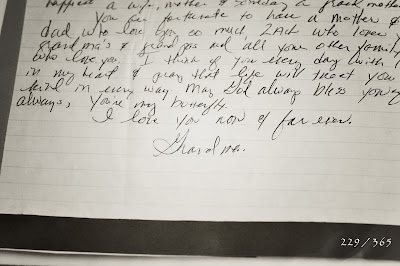 happiest a wife, mother & someday a grand mother
You are fortunate to have a mother &
dad who love you so much, Zach who loves you
grandma's & grand pas and all your other family
who love you. I think of you every day with
in my heart & pray that life will treat you
kind in every way. May God always bless you
always, You're my butterfly.
I love you now & for ever.
Grandma.
229/365